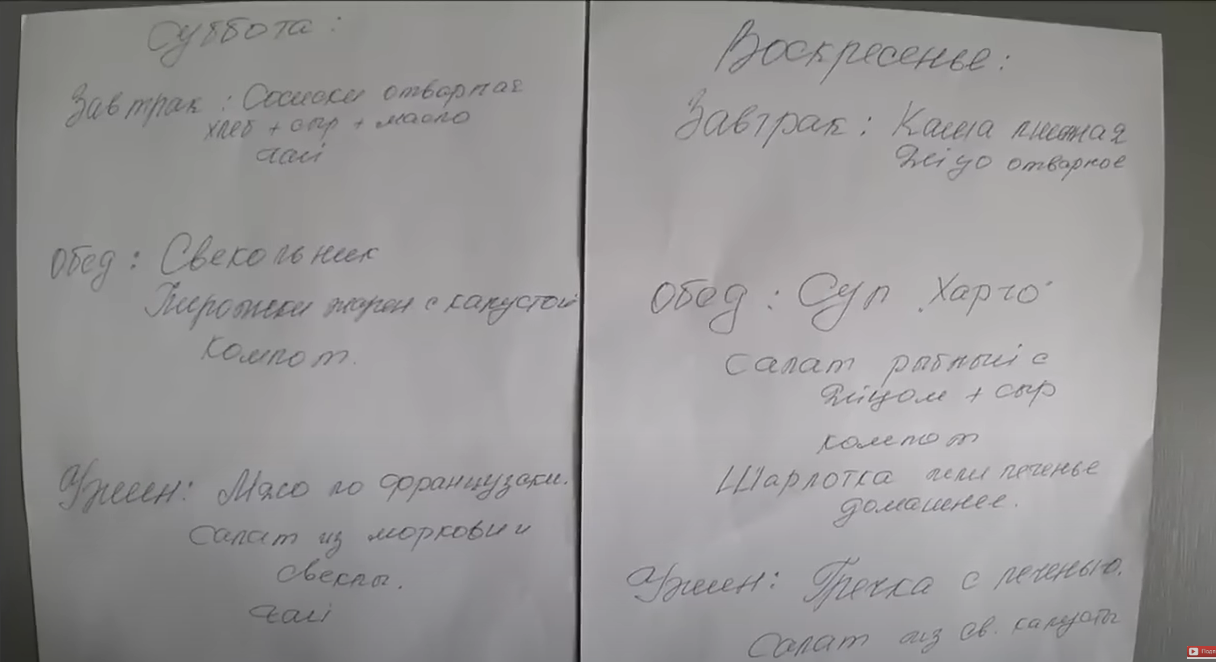 Суббота:
Завтрак: Сосиски отварная
хлеб + сыр + масло
чай
Обед: Свекольник
Пирожки жарен с капустой
компот.
Ужин: Мясо по французски.
Салат из моркови и
свеклы.
чай
Воскресенье:
Завтрак: Каша пшенная
Яйцо отварное
Обед: Суп "Харчо"
Салат рыбный с
яйцом + сыр
компот
Шарлотка или печенье
домашнее.
Ужин: Гречка с печенью.
Салат из св. капусты